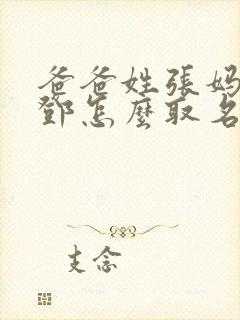 爸爸姓張妈
鄧怎麼取名
支念